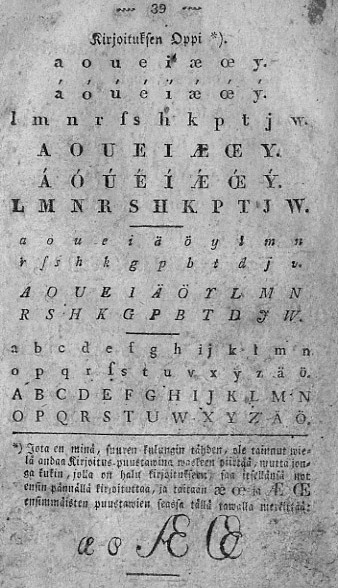 39
Kirjoituksen Oppi *).
a o u e i æ œ y.
á ó ú é í ǽ œ́ ý.
l m n r ſ s h k p t j w.
A O U E I Æ Œ Y.
Á Ó Ú É Í Ǽ Œ́ Ý.
L M N R S H K P T J W.
a o u e i ä ö y l m n
r ſ s h k g p b t d j v.
A O U E I Ä Ö Y L M N
R S H K G P B T D J W.
a b c d e f g h i j k l m n
o p q r ſ s t u v x y z ä ö.
A B C D E F G H I J K L M N
O P Q R S T U W X Y Z Ä Ö.
*) Jota en minä, suuren kulungin tähden, ole tainnut wie-
lä andaa Kirjoitus-puustawina waskeen piirtää, mutta jon-
ga kukin, jolla on halu kirjoitukseen, saa itsellänsä nyt
ensin pännällä kirjoituttaa, ja taitaan æ œ ja Æ Œ
ensimmäisten puustawien seassa tällä tawalla merkittää:
æ œ Æ Œ